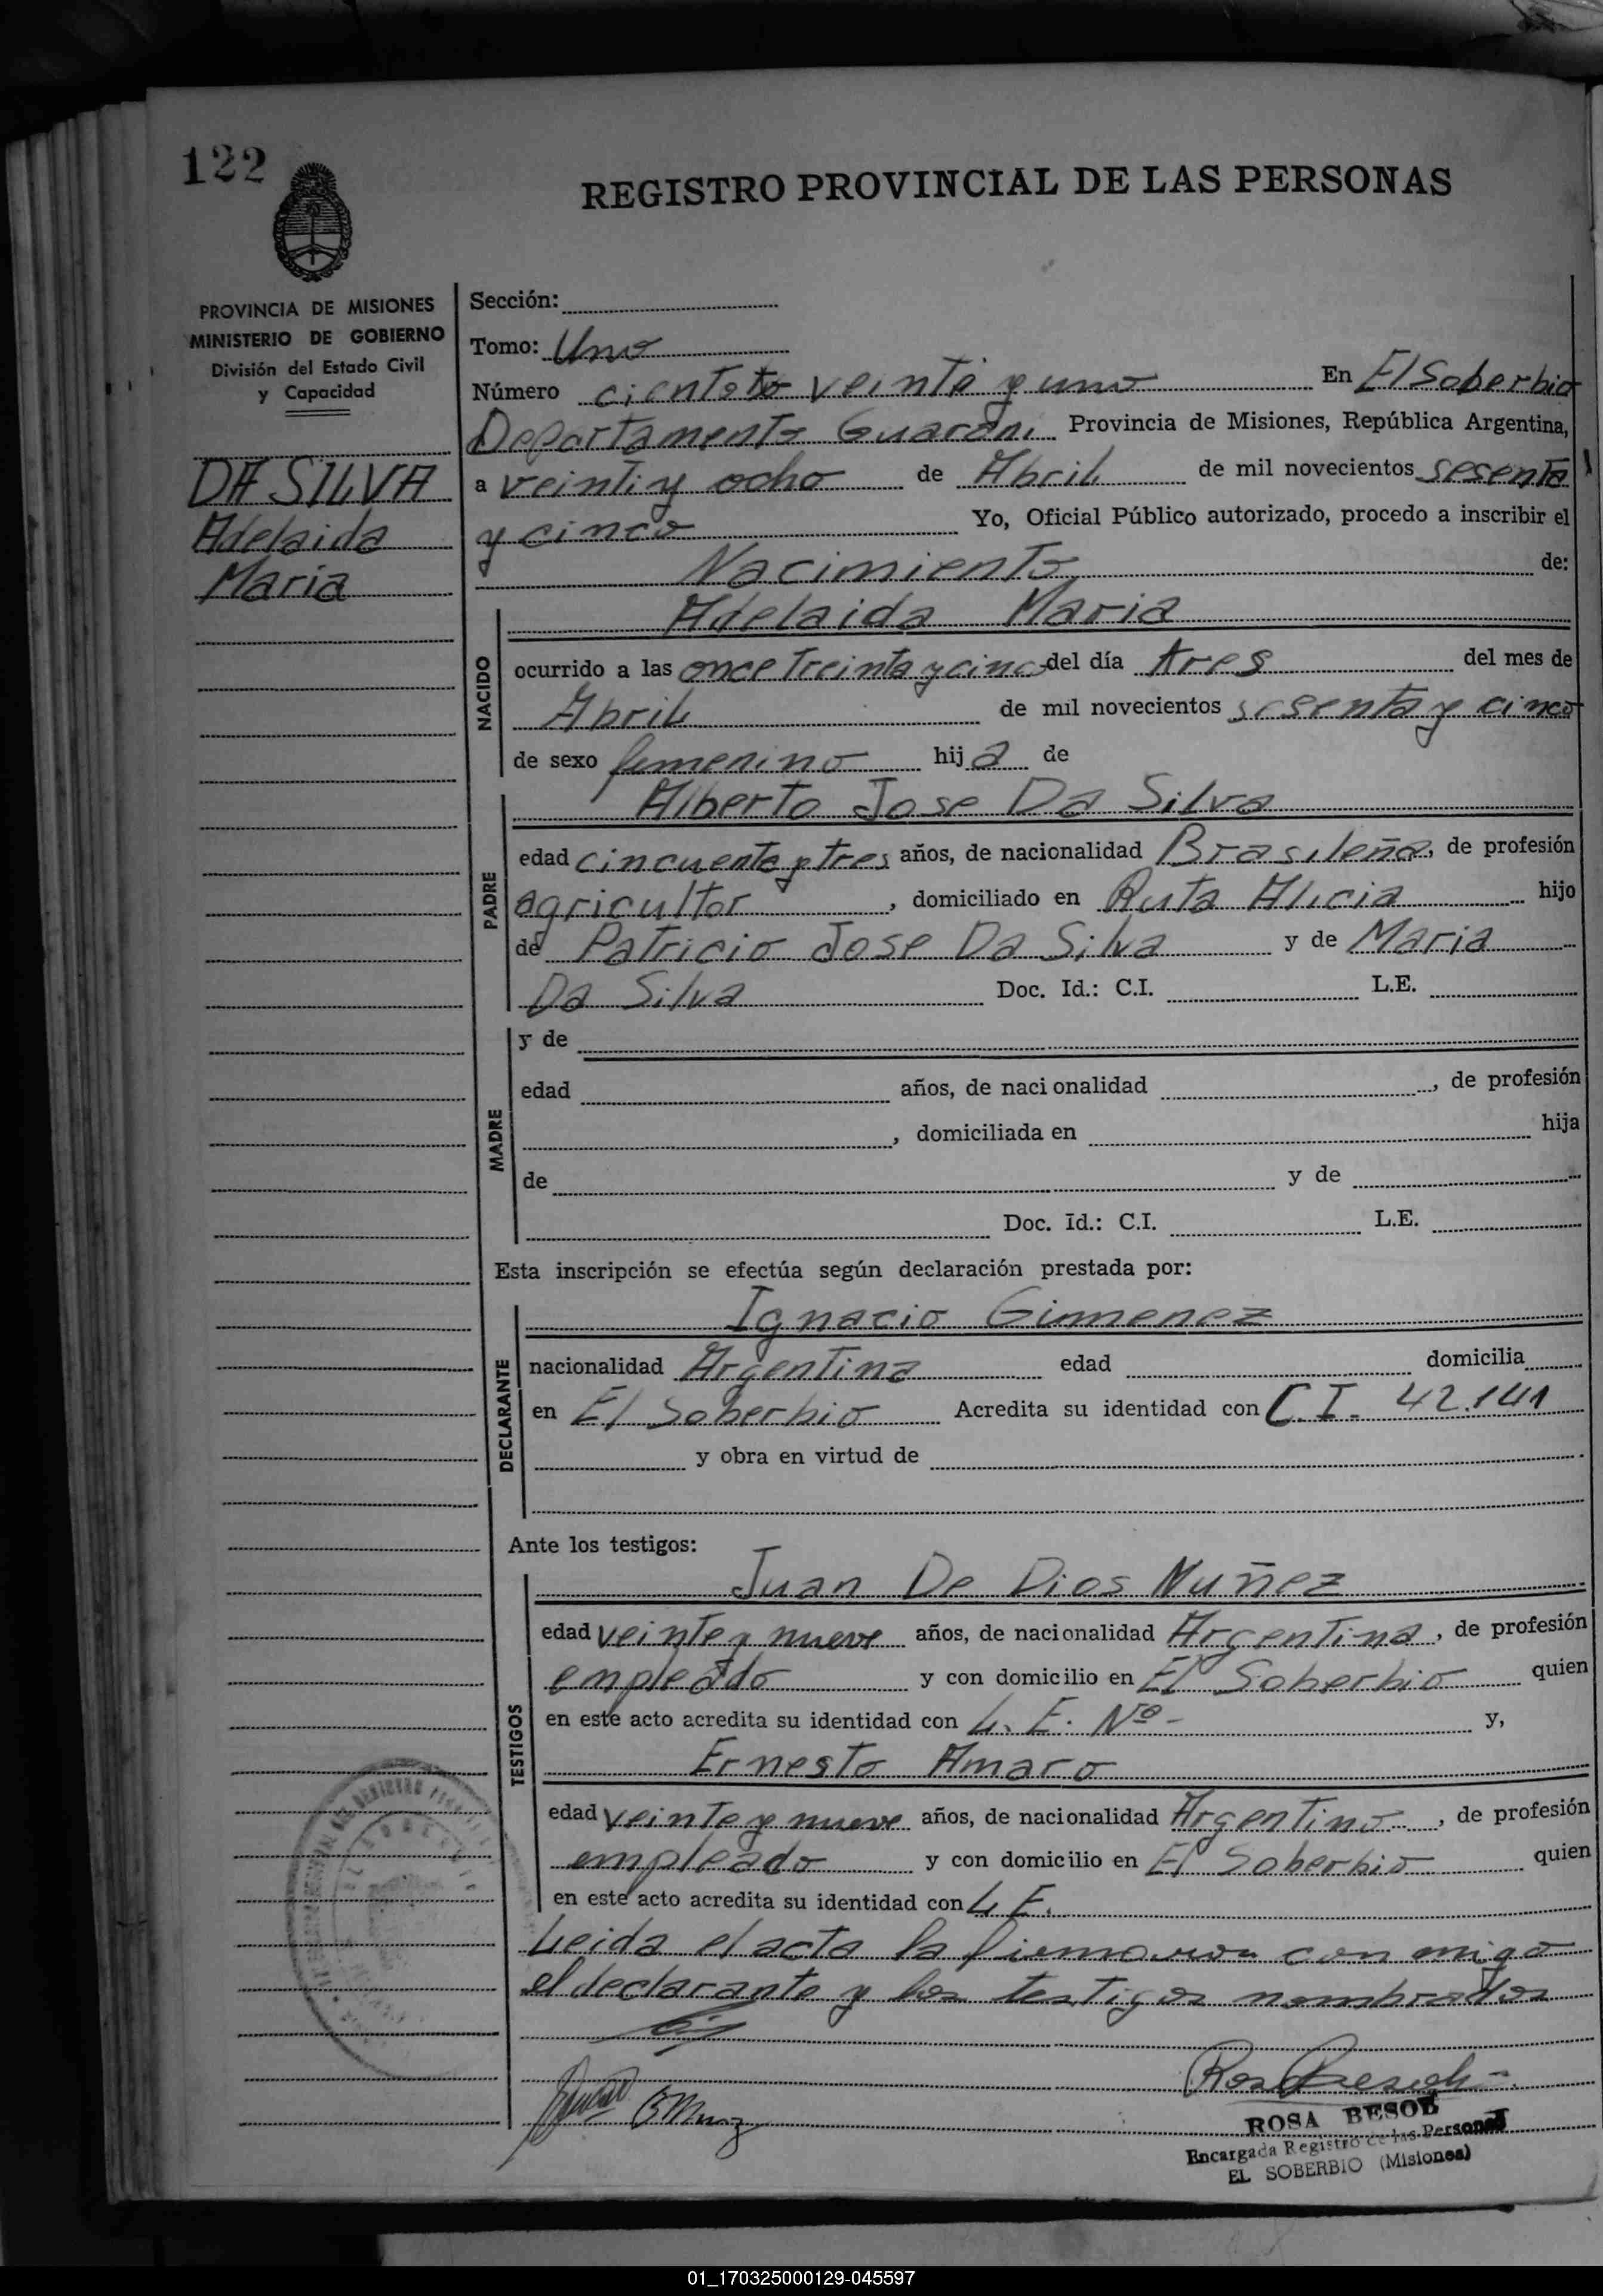 122
REGISTRO PROVINCIAL DE LAS PERSONAS
PROVINCIA DE MISIONES
MINISTERIO DE GOBIERNO
División del Estado Civil
y Capacidad
DA SILVA
Adelaida
Maria
Sección:
Tomo: Uno
Número cientoto veinte y uno En El Soberbio
Departamento Guarani Provincia de Misiones, República Argentina,
a veinti y ocho de Abril de mil novecientos sesenta
y cinco Yo, Oficial Público autorizado, procedo a inscribir el
Nacimiento de:
NACIDO
Adelaida Maria
ocurrido a las once treinta y cinco del día tres del mes de
Abril de mil novecientos sesenta y cinco
de sexo femenino hija de
PADRE
Alberto Jose Da Silva
edad cincuenta y tres años, de nacionalidad Brasileña, de profesión
agricultor, domiciliado en Ruta Alicia hijo
de Patricio Jose Da Silva y de Maria
Da Silva Doc. Id.: C.I. L.E.
MADRE
y de
edad años, de nacionalidad , de profesión
, domiciliada en hija
de y de
Doc. Id.: C.I. L.E.
Esta inscripción se efectúa según declaración prestada por:
DECLARANTE
Ignacio Gimenez
nacionalidad Argentina edad domicilia
en El Soberbio Acredita su identidad con C.I. 42.141
y obra en virtud de
Ante los testigos:
TESTIGOS
Juan De Dios Nuñez
edad veinte y nueve años, de nacionalidad Argentina, de profesión
empleado y con domicilio en El Soberbio quien
en este acto acredita su identidad con L. E. Nº - y,
Ernesto Amaro
edad veinte y nueve años, de nacionalidad Argentino, de profesión
empleado y con domicilio en El Soberbio quien
en este acto acredita su identidad con L E.
Leida el acta la firmaron con migo
el declarante y los testigos nombrados
ROSA BESOB
Encargada Registro de las Personas
EL SOBERBIO (Misiones)
01_170325000129-045597